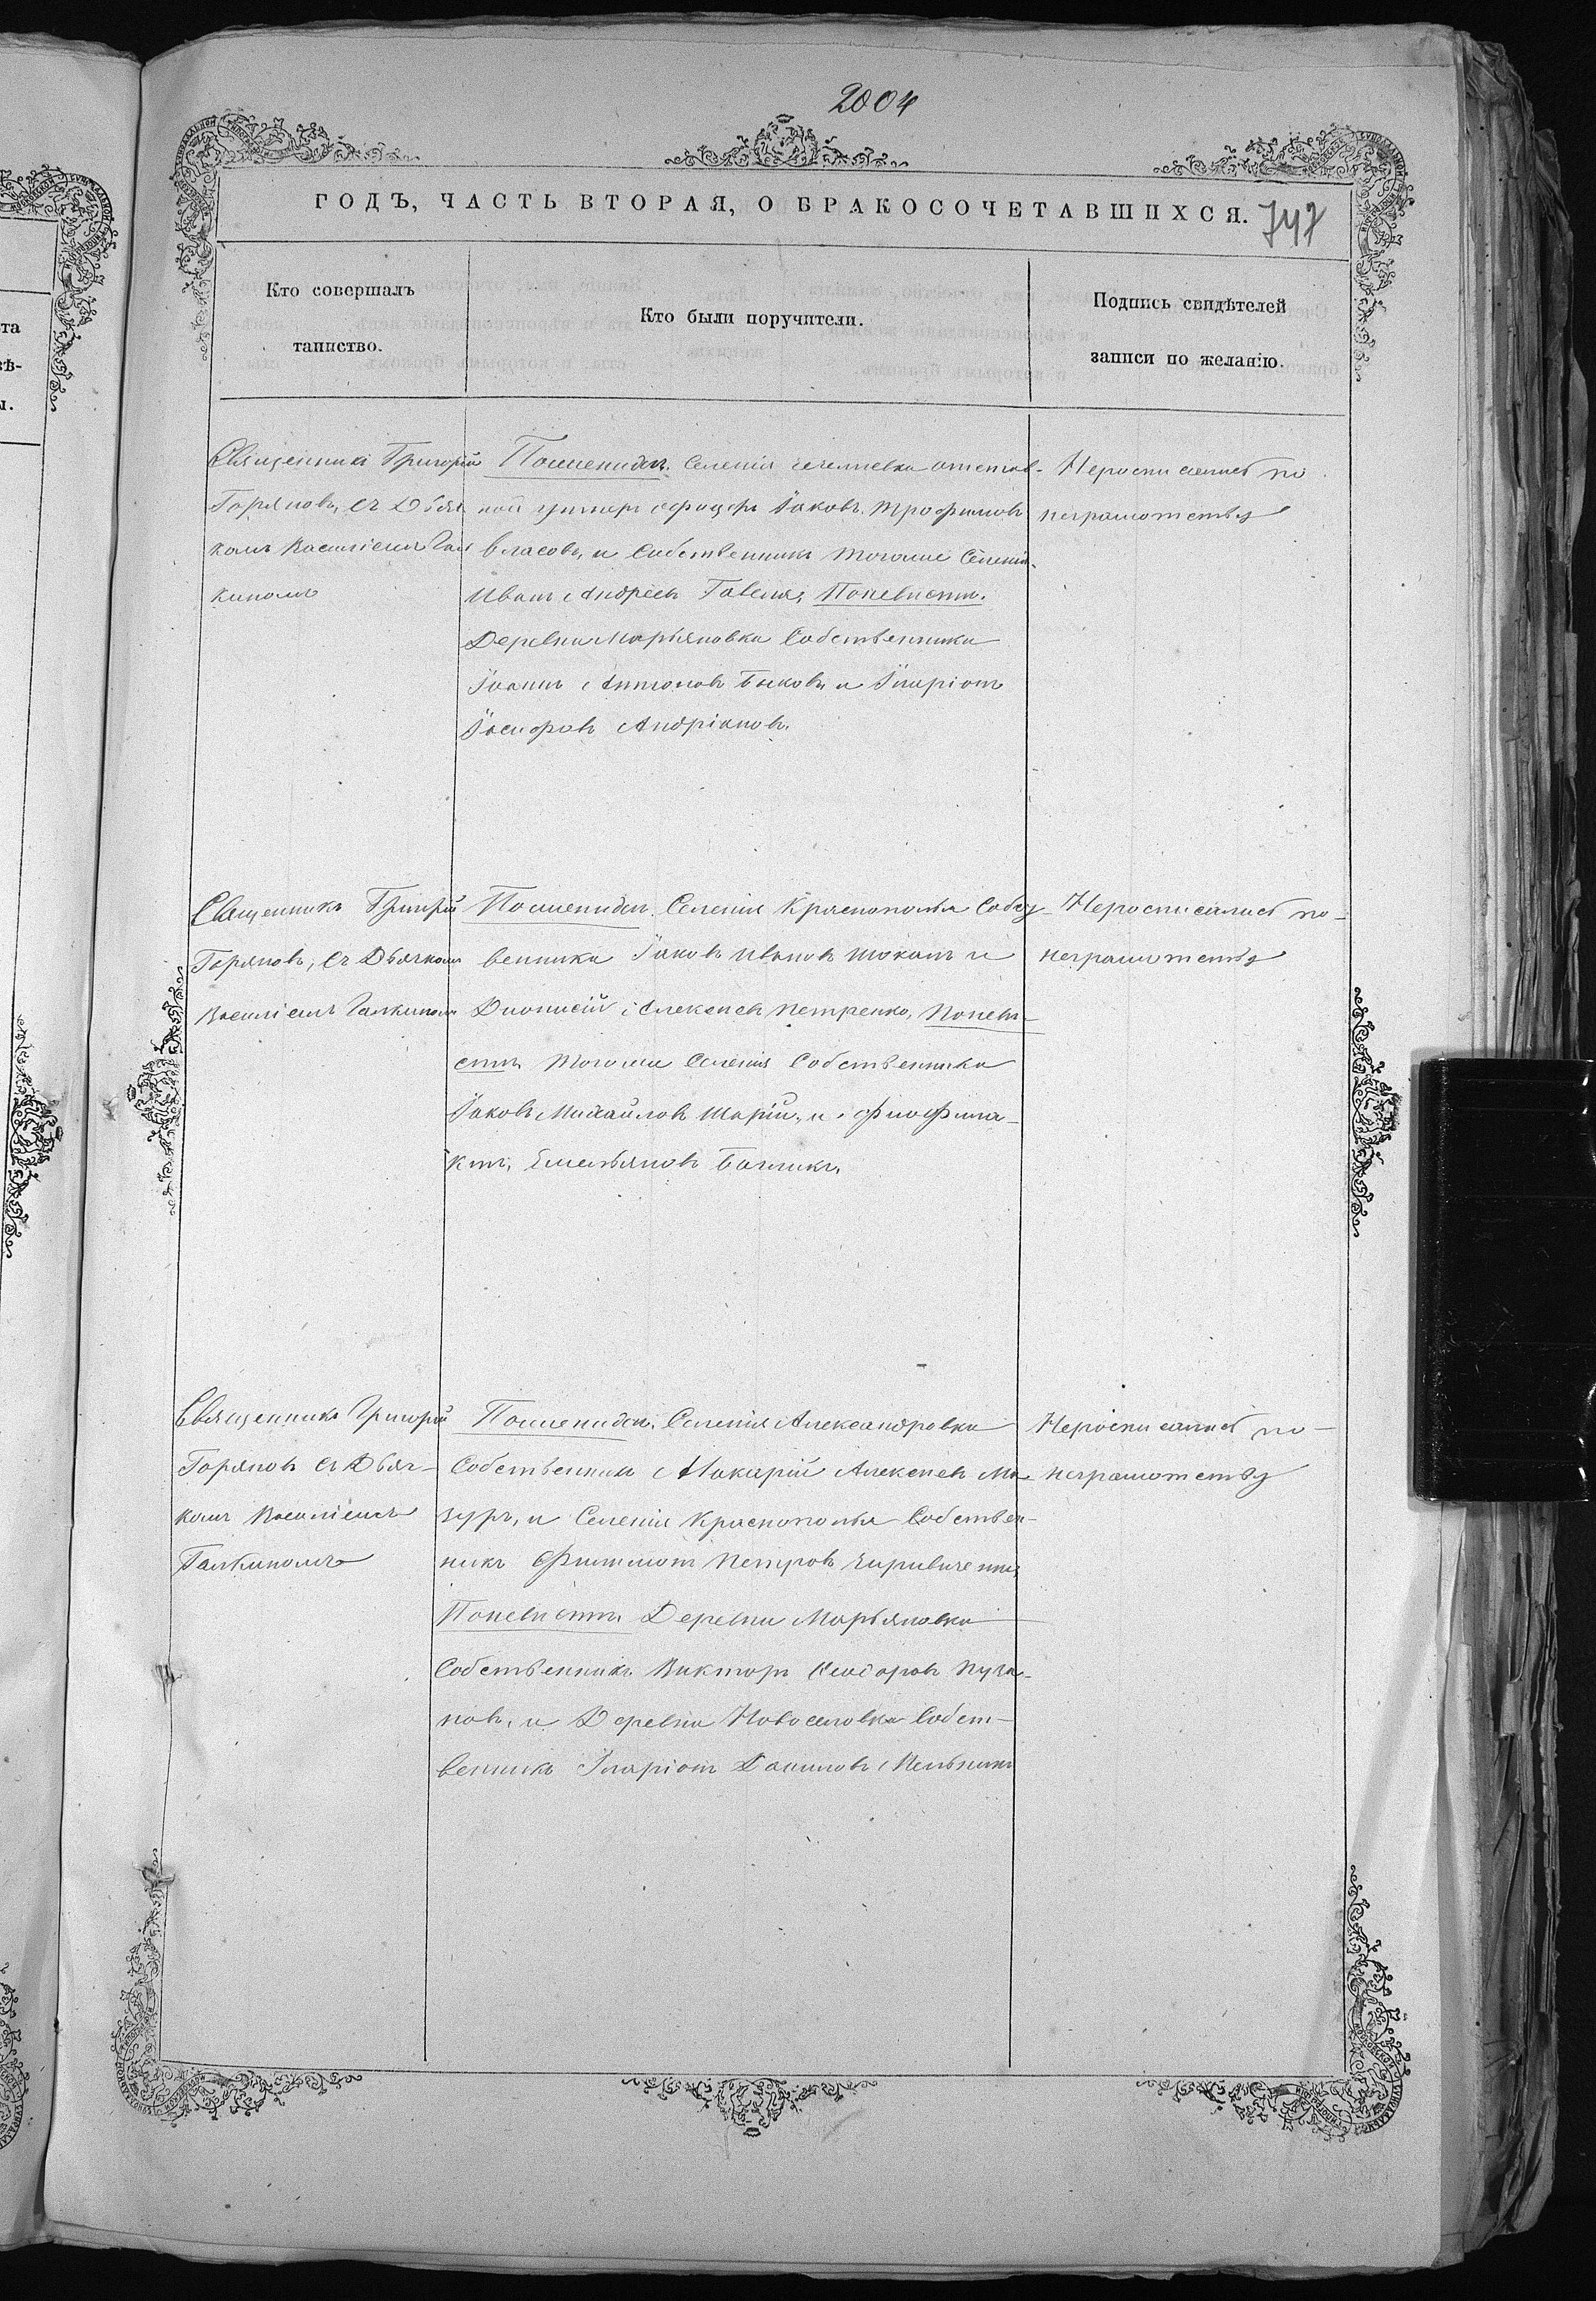 2004
ГОДЪ, ЧАСТЬ ВТОРАЯ, О БРАКОСОЧЕТАВШИХСЯ.
747
Кто совершалъ
таинство.
Кто были поручители.
Подпись свидѣтелей
записи по желанію.
Священникъ Григорій
Горяновъ, съ Дьяч
комъ Василіемъ Гал
кинымъ
По женихѣ. Селенія отстав-
ной унтеръ офицеръ Іаковъ Трофимовъ
Власовъ, и Собственникъ тогоже Селенія
Иванъ Андреевъ По невѣстѣ.
Деревни Марьяновки Собственники
Іоаннъ Антоновъ Быковъ и Иларіонъ
Іосифовъ Андріяновъ.
Неросписались по
неграмотству
Священникъ Григорій
Горяновъ, съ Дьячкомъ
Василіемъ Галкинымъ
По женихѣ. Селенія Краснополья Собст
венники Іаковъ Ивановъ и
Діонисій Алексеевъ Петренко, По невѣ-
стѣ тогоже Селенія Собственники
Іаковъ Михайловъ и
Емельяновъ
Неросписались по-
неграмотству
Священникъ Григорій
Горяновъ съ Дьяч-
комъ Василіемъ
Галкинымъ
По женихѣ. Селенія Александровки
Собственникъ Макарій Алексеевъ Ма
зуръ, и Селенія Краснополья Собствен-
никъ Филимонъ Петровъ
По невѣстѣ Деревни Марьяновки
Собственникъ Викторъ Пуза-
новъ, и Деревни Новоселовки Собст-
венникъ Иларіонъ Даниловъ Мельникъ
Неросписались по-
неграмотству